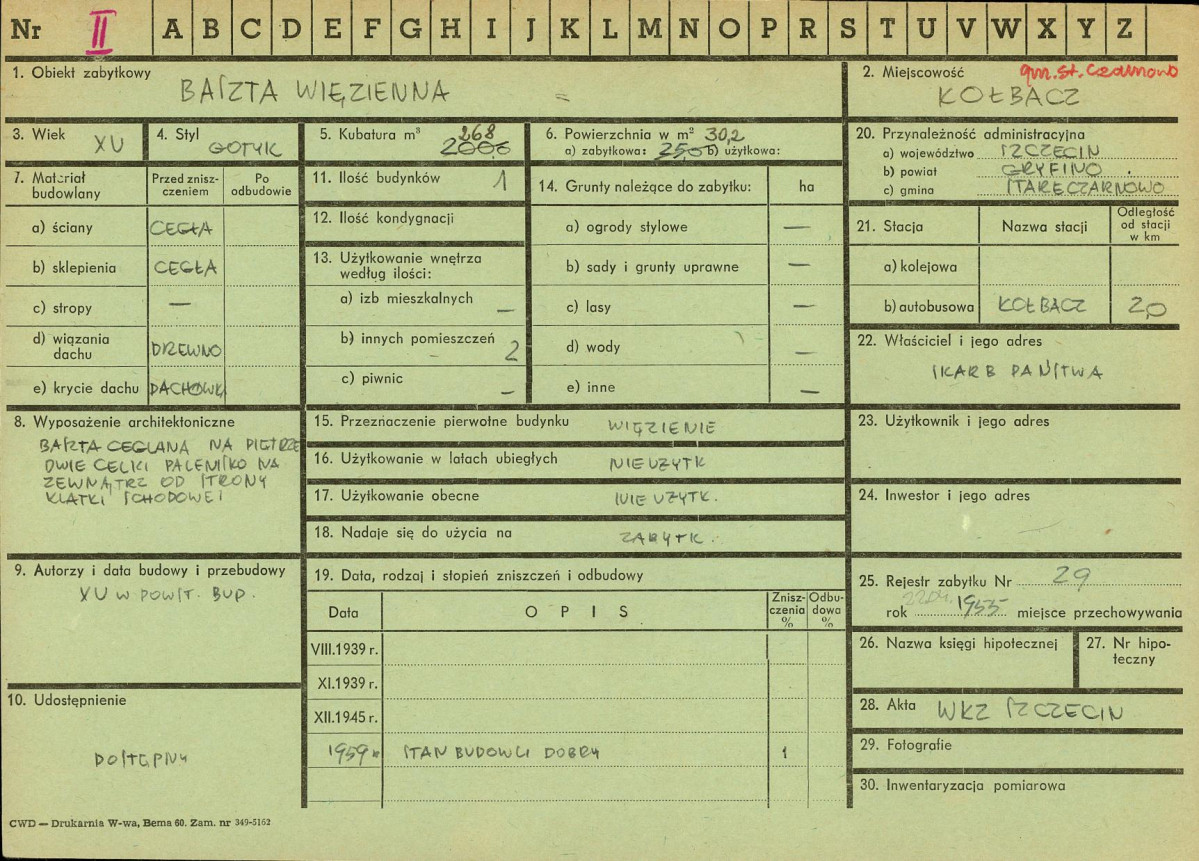 Nr II A B C D E F G H I J K L M N O P R S T U V W X Y Z
1. Obiekt zabytkowy
BASZTA WIĘZIENNA
2. Miejscowość gm. St. Czarnowo
KOŁBACZ
3. Wiek
XV
4. Styl
GOTYK
5. Kubatura m³ 268
2000
6. Powierzchnia w m² 30,2
a) zabytkowa: 25,0 b) użytkowa:
20. Przynależność administracyjna
a) województwo SZCZECIN
b) powiat GRYFINO
c) gmina STARE CZARNOWO
7. Materiał budowlany
Przed znisz-
czeniem
Po
odbudowie
a) ściany CEGŁA
b) sklepienia CEGŁA
c) stropy —
d) wiązania
dachu DRZEWNO
e) krycie dachu DACHÓWK
11. Ilość budynków 1
12. Ilość kondygnacji
13. Użytkowanie wnętrza
według ilości:
a) izb mieszkalnych —
b) innych pomieszczeń 2
c) piwnic —
14. Grunty należące do zabytku: ha
a) ogrody stylowe —
b) sady i grunty uprawne —
c) lasy —
d) wody —
e) inne —
21. Stacja
Nazwa stacji
Odległość
od stacji
w km
a) kolejowa
b) autobusowa KOŁBACZ 20
22. Właściciel i jego adres
SKARB PAŃSTWA
8. Wyposażenie architektoniczne
BASZTA CEGLANA NA PIĘTRZE
DWIE CELKI PALENISKO NA
ZEWNĄTRZ OD STRONY
KLATKI SCHODOWEJ
15. Przeznaczenie pierwotne budynku WIĘZIENIE
16. Użytkowanie w latach ubiegłych NIEUŻYTK
17. Użytkowanie obecne NIEUŻYTK.
18. Nadaje się do użycia na ZABYTK.
23. Użytkownik i jego adres
24. Inwestor i jego adres
9. Autorzy i data budowy i przebudowy
XV W POWST. BUD.
10. Udostępnienie
DOSTĘPNY
19. Data, rodzaj i stopień zniszczeń i odbudowy
Data
OPIS
Znisz-
czenia
%
Odbu-
dowa
%
VIII.1939 r.
XI.1939 r.
XII.1945 r.
1959 r. STAN BUDOWLI DOBRY 1
25. Rejestr zabytku Nr 29
rok 1955 miejsce przechowywania
26. Nazwa księgi hipotecznej
27. Nr hipo-
teczny
28. Akta WKZ SZCZECIN
29. Fotografie
30. Inwentaryzacja pomiarowa
CWD — Drukarnia W-wa, Bema 60. Zam. nr 349-5162